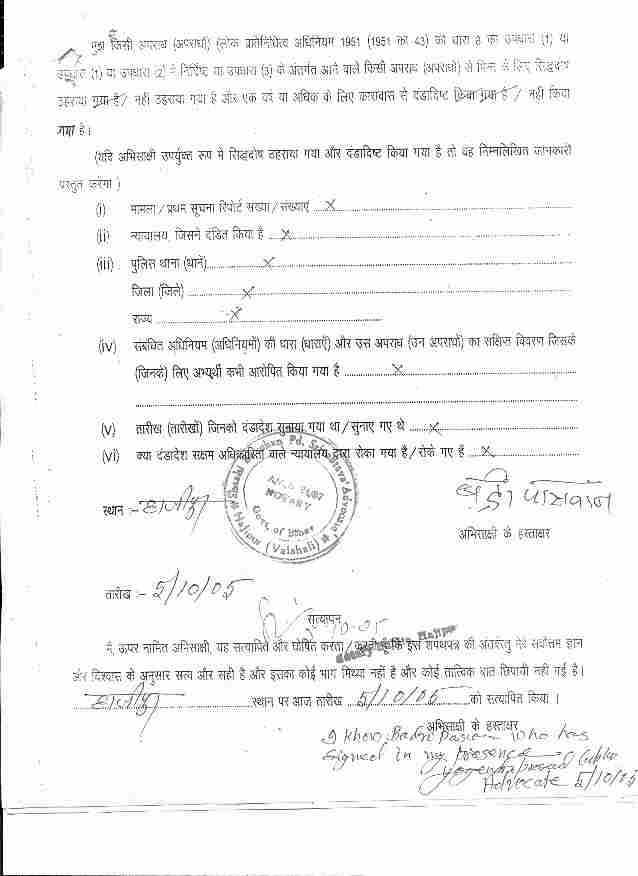 मुझे किसी अपराध (अपराधों) (लोक प्रतिनिधित्व अधिनियम 1951 (1951 का 43) की धारा 8 की उपधारा (1) या
उपधारा (1) या उपधारा (2) में निर्दिष्ट या उपधारा (3) के अंतर्गत आने वाले किसी अपराध (अपराधों) से भिन्न के लिए सिद्धदोष
ठहराया गया है / नहीं ठहराया गया है और एक वर्ष या अधिक के लिए कारावास से दंडादिष्ट किया गया है / नहीं किया
गया है।
(यदि अभिसाक्षी उपर्युक्त रूप में सिद्धदोष ठहराया गया और दंडादिष्ट किया गया है तो वह निम्नलिखित जानकारी
प्रस्तुत करेगा)
(i) मामला / प्रथम सूचना रिपोर्ट संख्या / संख्याएं X
(ii) न्यायालय, जिसने दंडित किया है X
(iii) पुलिस थाना (थाने) X
जिला (जिले) X
राज्य X
(iv) संबंधित अधिनियम (अधिनियमों) की धारा (धाराएँ) और उस अपराध (उन अपराधों) का संक्षिप्त विवरण जिसके
(जिनके) लिए अभ्यर्थी कभी आरोपित किया गया है X
(v) तारीख (तारीखों) जिनको दंडादेश सुनाया गया था / सुनाए गए थे X
(vi) क्या दंडादेश सक्षम अधिकारिता वाले न्यायालय द्वारा रोका गया है / रोके गए हैं X
Shashi Bhushan Pd. Srivastava Advocate
NOTARY
Govt. of Bihar
Hajipur (Vaishali)
स्थान :- हाजीपुर
बद्री पासवान
अभिसाक्षी के हस्ताक्षर
तारीख :- 5/10/05
सत्यापन
मैं, ऊपर नामित अभिसाक्षी, यह सत्यापित और घोषित करता / करती हूँ कि इस शपथपत्र की अंतर्वस्तु मेरे सर्वोत्तम ज्ञान
और विश्वास के अनुसार सत्य और सही है और इसका कोई भाग मिथ्या नहीं है और कोई तात्विक बात छिपायी नहीं गई है।
हाजीपुर स्थान पर आज तारीख 5/10/05 को सत्यापित किया।
अभिसाक्षी के हस्ताक्षर
I know Badri Paswan who has
signed in my presence
Advocate 5/10/05